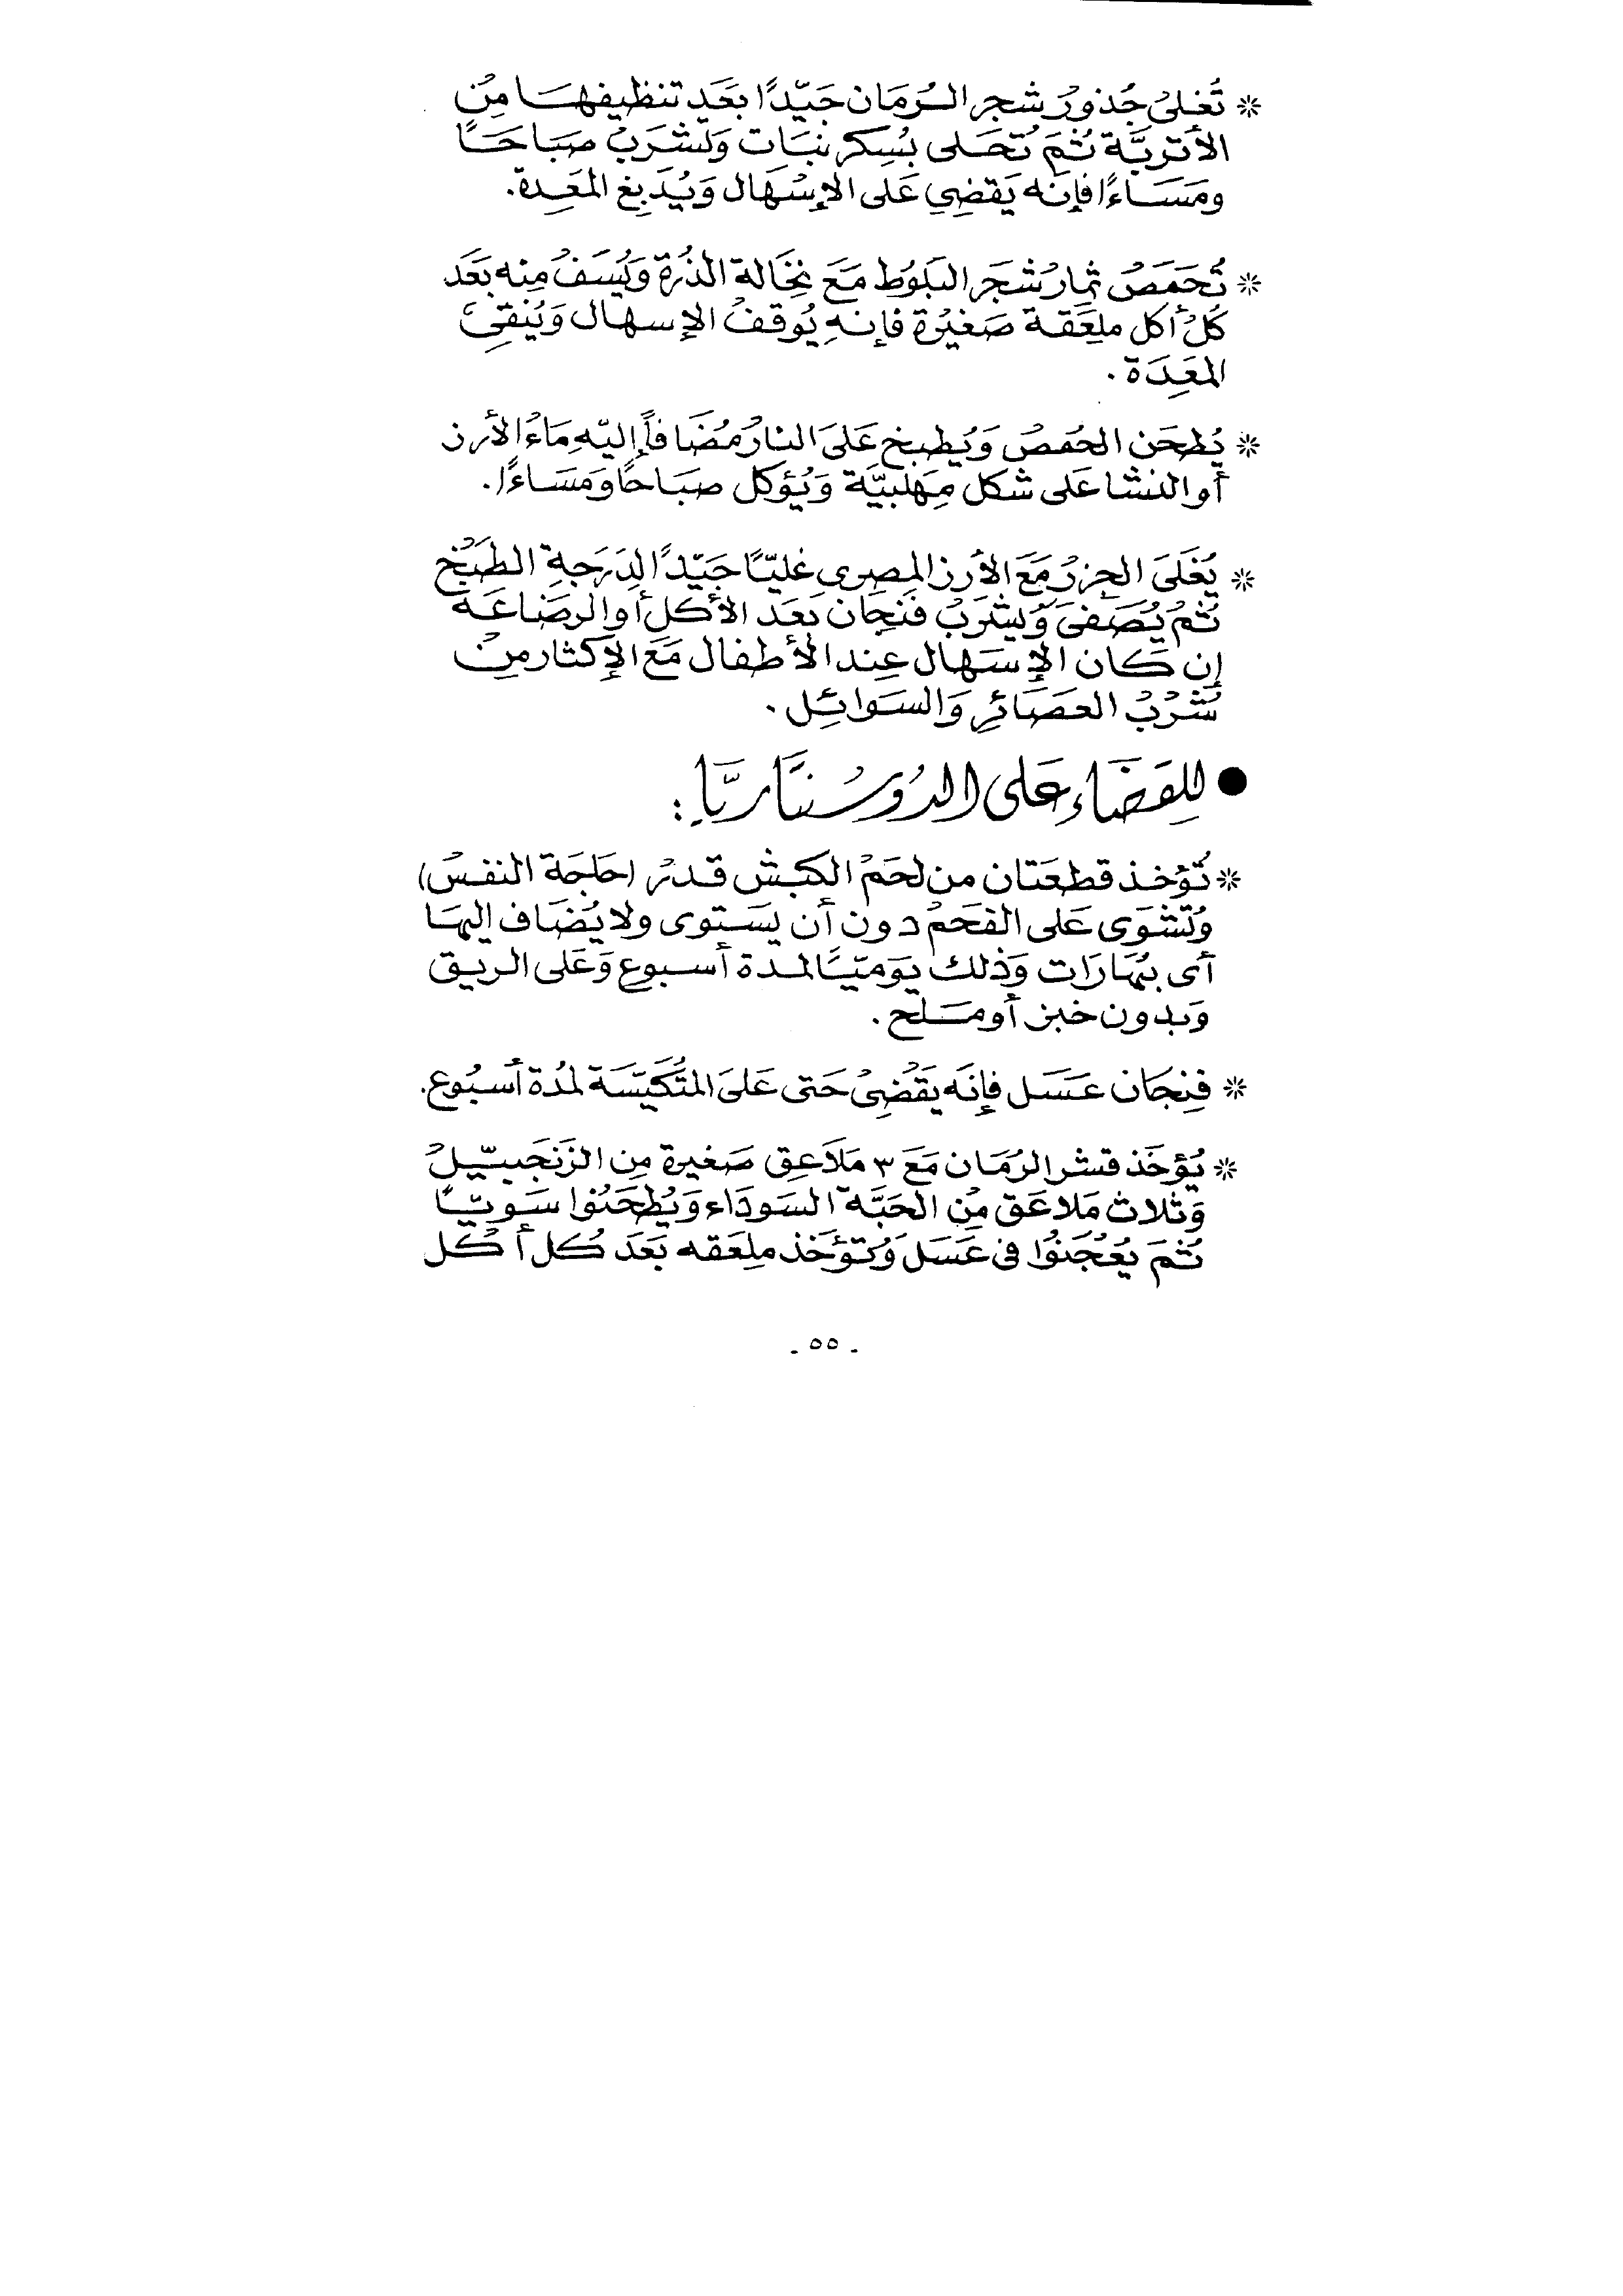 * تُغلى جُذورُ شجر الرُمَان جَيّدًا بَعَد تنظيفهَا مِنُ
الأتربَّة ثُمَ تُحَلى بسُكر نبَات وَتشرَبُ صَبَاحًا
ومَسَاءًا فإنَه يَقضِي عَلى الإسُهَال وَيُدَبغ المَعِدة.
* تُحَمَصُ ثمارُ شجَر البَلوُط مَعَ نخَالة الذُرة وَيُسَفُ مِنه بَعَد
كُلُ أكل ملعَقة صَغيُرة فإنهِ يُوقفُ الإسهال وَيُنقيَ
المَعِدَة .
* يُطحَن الحُمصُ وَيُطبخ عَلىَ النارُ مُضَافاً إليّهِ مَاءُ الأرز
أو النشا عَلى شكل مِهَلبيَّة وَيُؤكل صبَاحًا ومَسَاءًا.
* يُغلَىَ الجزرُ مَعَ الأرز المِصرى غليّا جَيّدًا لِدَرَجةِ الطبَخ
ثُمُ يُصَفىَ وَيُشرَبُ فنَجِان بَعَد الأكل أو الرضَاعَة
إن كان الإسَهال عِند الأطفال مَعَ الإكثار مِنُ
شُرُبُ العصَائرِ وَالسَوائِل .
● للِقَضَاءِ عَلى الدُوسُنتَاريَّا :
* تُؤخذ قطعَتان من لحَمُ الكبش قدرُ (حَاجَة النفسُ)
وُتشوَى عَلى الفحَمُ دون أن يسَتوى ولا يُضَاف إليهَا
أى بهَارَات وَذلك يوَميّا لمدة أسبوع وَعَلى الريق
وَبدون خبز أو مَلح .
* فِنجَان عَسَل فإنَه يَقضُىُ حَتى عَلىَ المتُكَيّسَة لمدُة أسبُوع.
* يُؤخَذ قشر الرُمَان مَعَ ٣ مَلاَعِق صَغيرة مِن الزَنجَبيّلُ
وَثلاث مَلاعَق مِنُ الحَبَّة السَودَاء وَيُطحَنُوا سَويّاً
ثُمَ يُعُجَنوُا فى عَسَل وَتُؤَخَذ ملِعَقه بَعَدَ كُل أكُل
- ٥٥ -